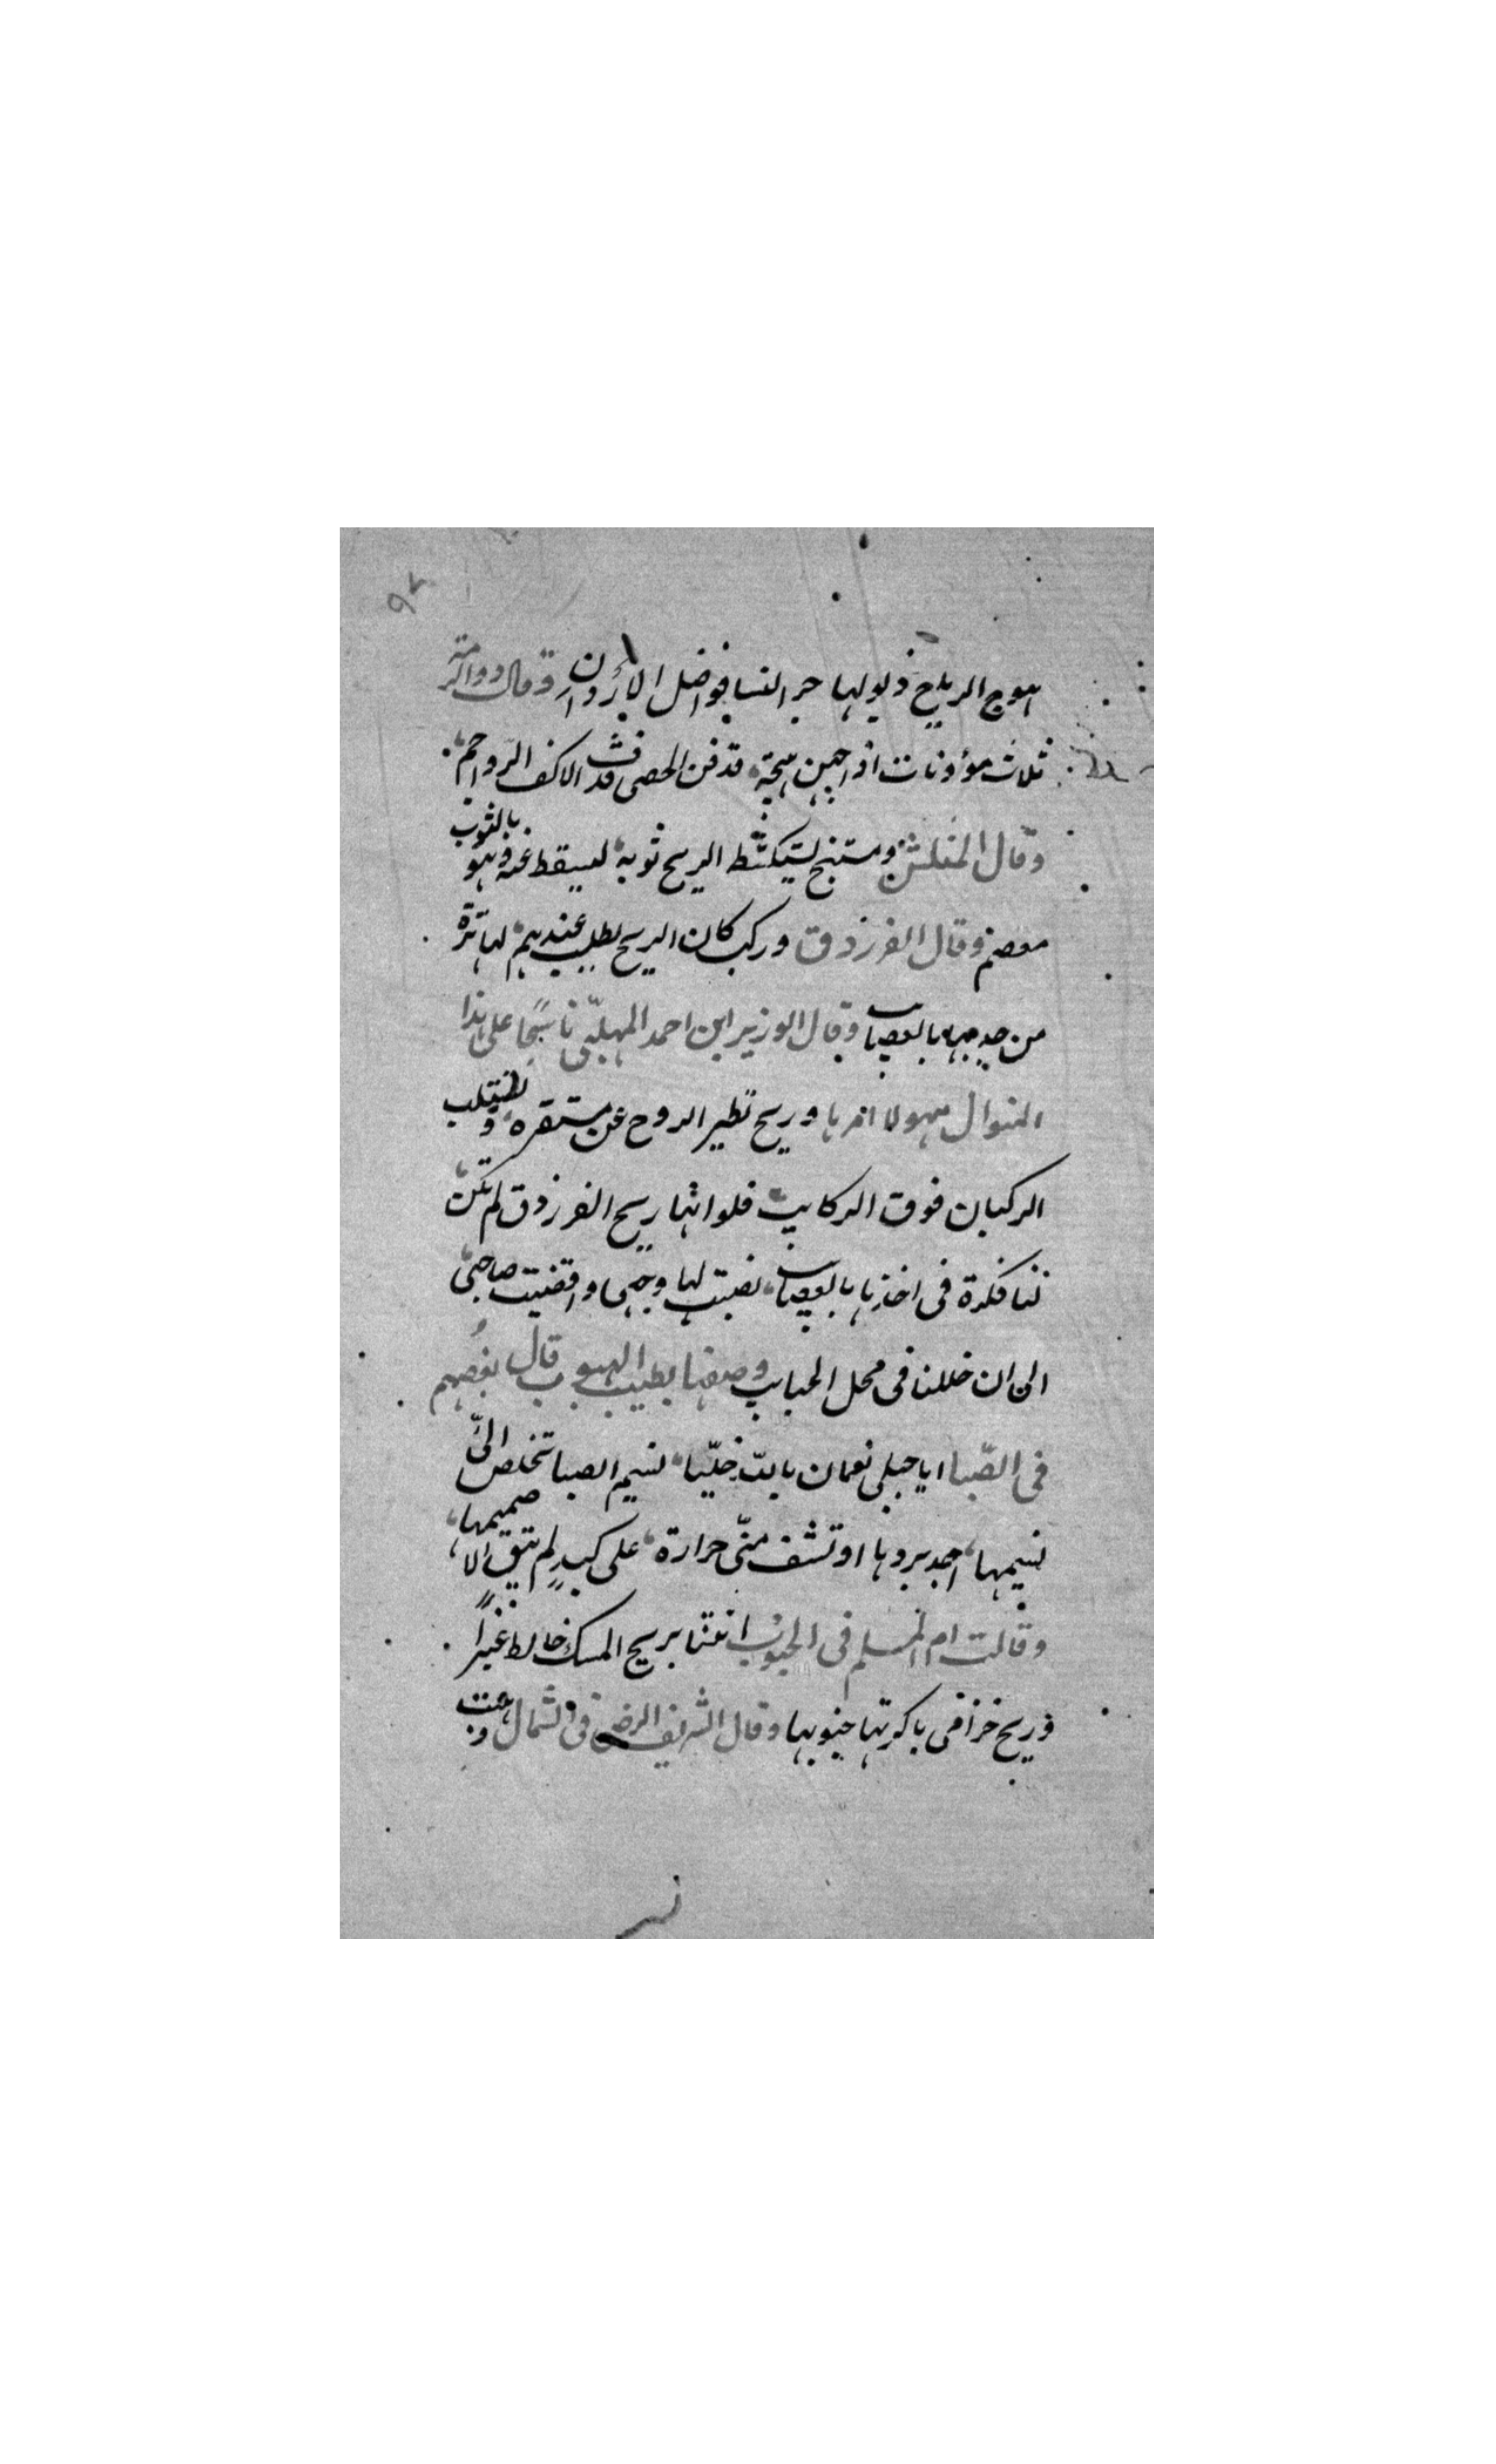 ٩٢
هوج الرياح ذيولها جر النسا فواضل الأردان وقال ذوالرمة
ثلاث مؤذنات اذا هجن هيجة قدفن الحصى قذف الاكف الرواجم
وقال المتلمس ومستنبح تستكشط الريح ثوبه ليسقط عنه وهو بالثوب
معصم وقال الفرزدق وركب كان الريح تطلب عندهم لها ترة
من جذبها بالعصائب وقال الوزير ابن احمد المهلبى ناسجا على هذا
المنوال سهولا اثرها وريح تطير الروح عن مستقره وتضيقلب
الركبان فوق الركايب فلو انها ريح الفرزدق لم تكن
لنا فكرة فى اخذها بالعصايب نصبت لها وجهى واقضيت صاحبى
الى ان حللنا فى محل الحبايب وصفها بطيب الهبوب قال بعضهم
فى الصبا ايا جبلى نعمان بالله خليا نسيم الصبا تخلص الىّ
نسيمها اجد بردها او تشف منى حرارة على كبد لم يبق الا صميمها
وقالت ام المسلم فى الجنوب اتتنا بريح المسك خالط عنبرا
وريح خزامى باكرتها جنوبها وقال الشريف الرضى فى الشمال وهبت